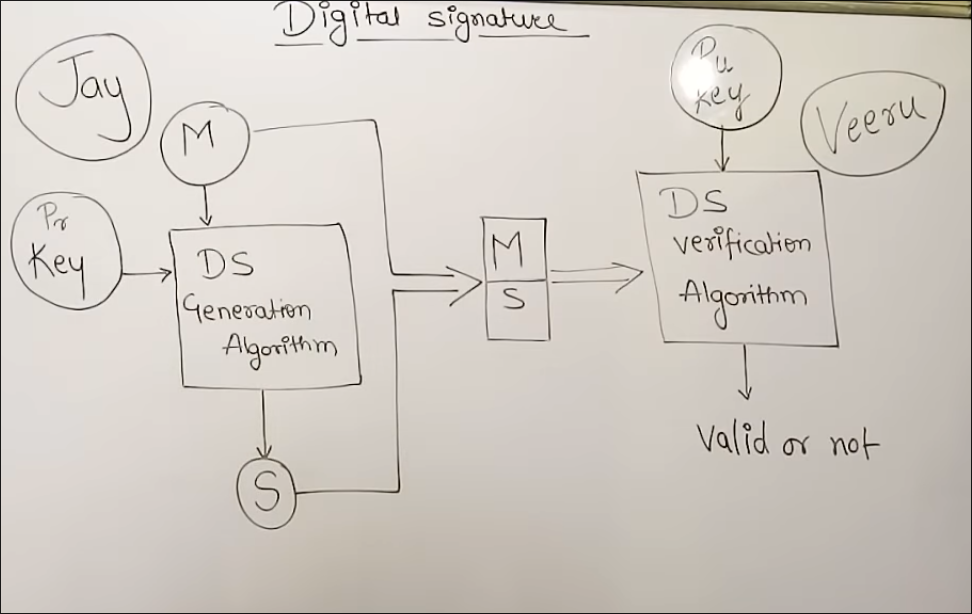 Digital signature
Jay
M
Pr
Key
DS
Generation
Algorithm
S
M
S
Pu
Key
Veeru
DS
verification
Algorithm
Valid or not